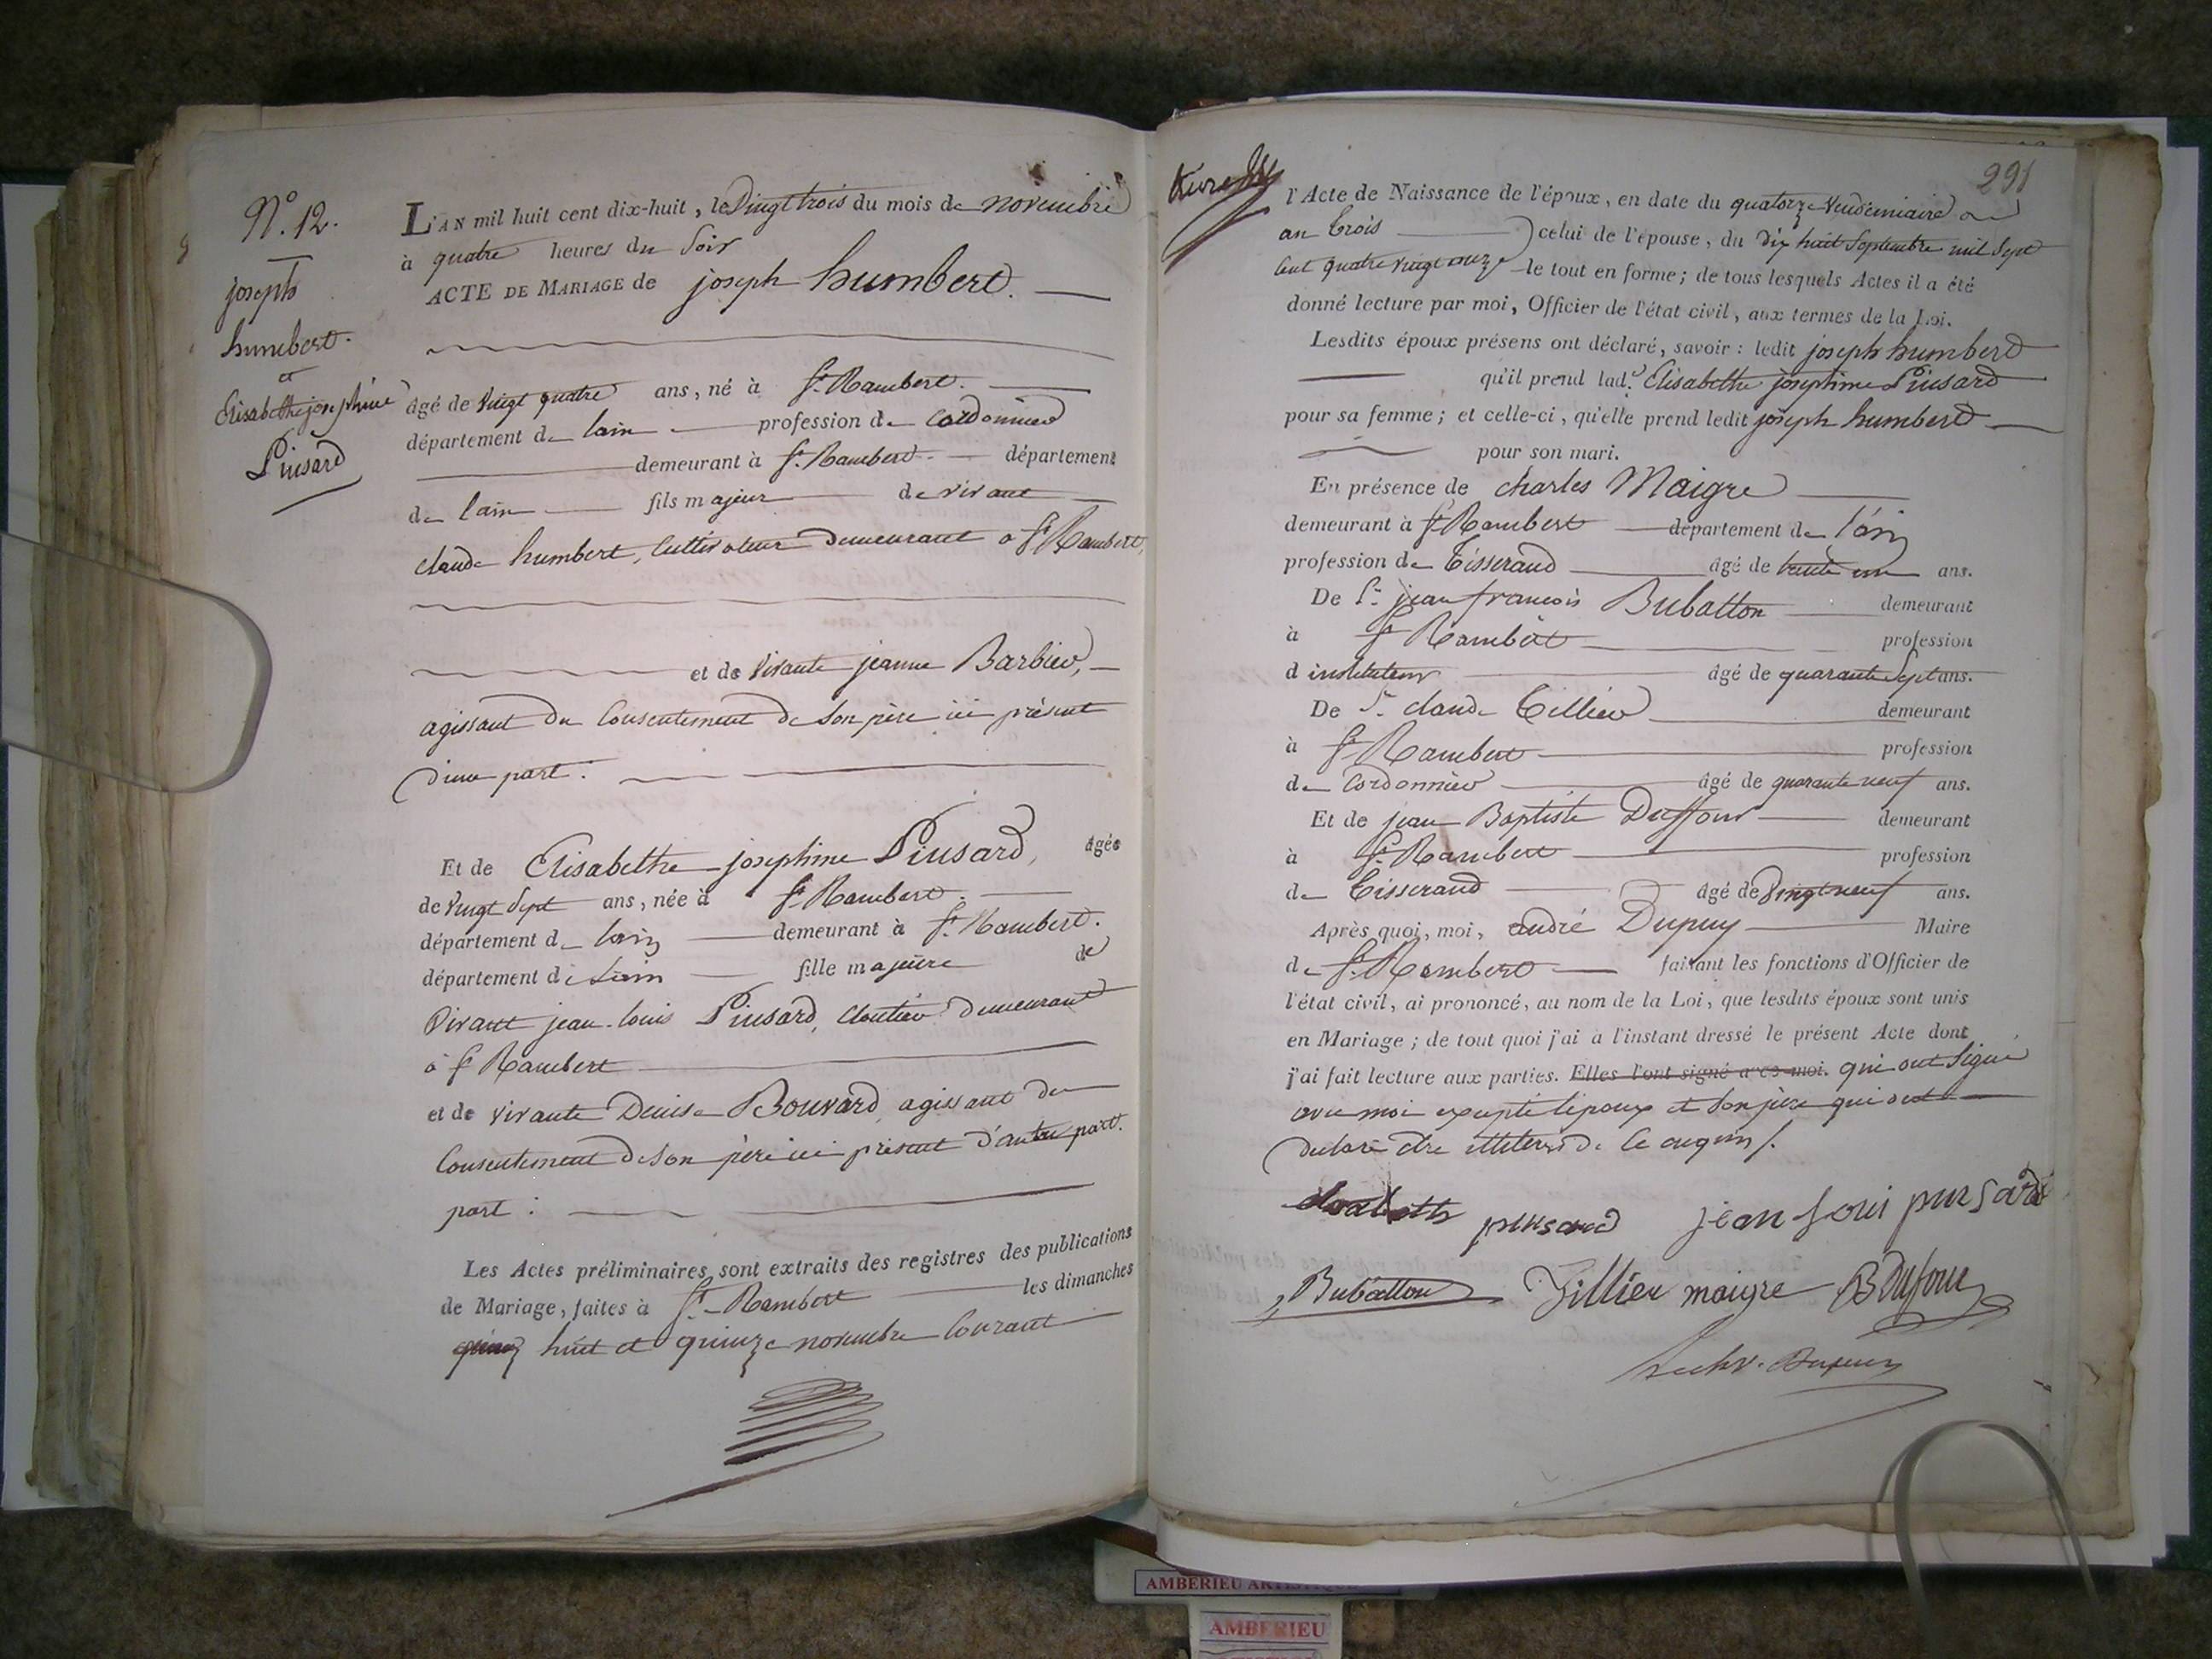 N.º 12.
joseph
humbert.
et
Elisabethe josephine
Pinsard
L'AN mil huit cent dix-huit, le Vingt trois du mois de novembre
à quatre heures du Soir
ACTE DE MARIAGE de joseph humbert.
âgé de Vingt quatre ans, né à St. Rambert.
département de lain profession de Cordonnier
demeurant à St. Rambert. département
de lain fils majeur de vivant
claude humbert, Cultivateur demeurant a St Rambert,
et de Vivante jeanne Barbier,
agissant du Consentement de son père ici présent
d'une part:
Et de Elisabethe josephine Pinsard, âgée
de Vingt Sept ans, née à St Rambert.
département de lain demeurant à St. Rambert.
département de Lain fille majeure de
Vivant jean-louis Pinsard, cloutier demeurant
à St Rambert
et de vivante Denise Bouvard, agissant du
Consentement de son père ici présent d'autre part.
part:
Les Actes préliminaires sont extraits des registres des publications
de Mariage, faites à St. Rambert les dimanches
huit et quinze novembre Courant
291
l'Acte de Naissance de l'époux, en date du quatorze Vendemiaire
an trois celui de l'épouse, du dix huit Septembre mil Sept
Cent quatre vingt onze le tout en forme; de tous lesquels Actes il a été
donné lecture par moi, Officier de l'état civil, aux termes de la Loi.
Lesdits époux présens ont déclaré, savoir: ledit joseph humbert
qu'il prend lad.e Elisabethe josephine Pinsard
pour sa femme; et celle-ci, qu'elle prend ledit joseph humbert
pour son mari.
En présence de charles Maigre
demeurant à St Rambert département de l'ain
profession de Tisserand âgé de trente un ans.
De Sr. jean françois Bubatton demeurant
à St Rambert profession
d instituteur âgé de quarante Sept ans.
De Sr. claude Tillier demeurant
à St Rambert profession
de Cordonnier âgé de quarante neuf ans.
Et de jean Baptiste Duffour demeurant
à St. Rambert profession
de Tisserand âgé de Vingt neuf ans.
Après quoi, moi, andré Dupuy Maire
de St. Rambert faisant les fonctions d'Officier de
l'état civil, ai prononcé, au nom de la Loi, que lesdits époux sont unis
en Mariage; de tout quoi j'ai à l'instant dressé le présent Acte dont
j'ai fait lecture aux parties. Elles l'ont signé avec moi. qui ont Signé
avec moi excepté l'époux et son père qui ont
declaré être illiterés de ce requis /.
elisabeth pinsard jean loui pinsard
Bubatton Tillier maigre BDufour
Dupuy
AMBERIEU ARTISTIQUE
AMBERIEU